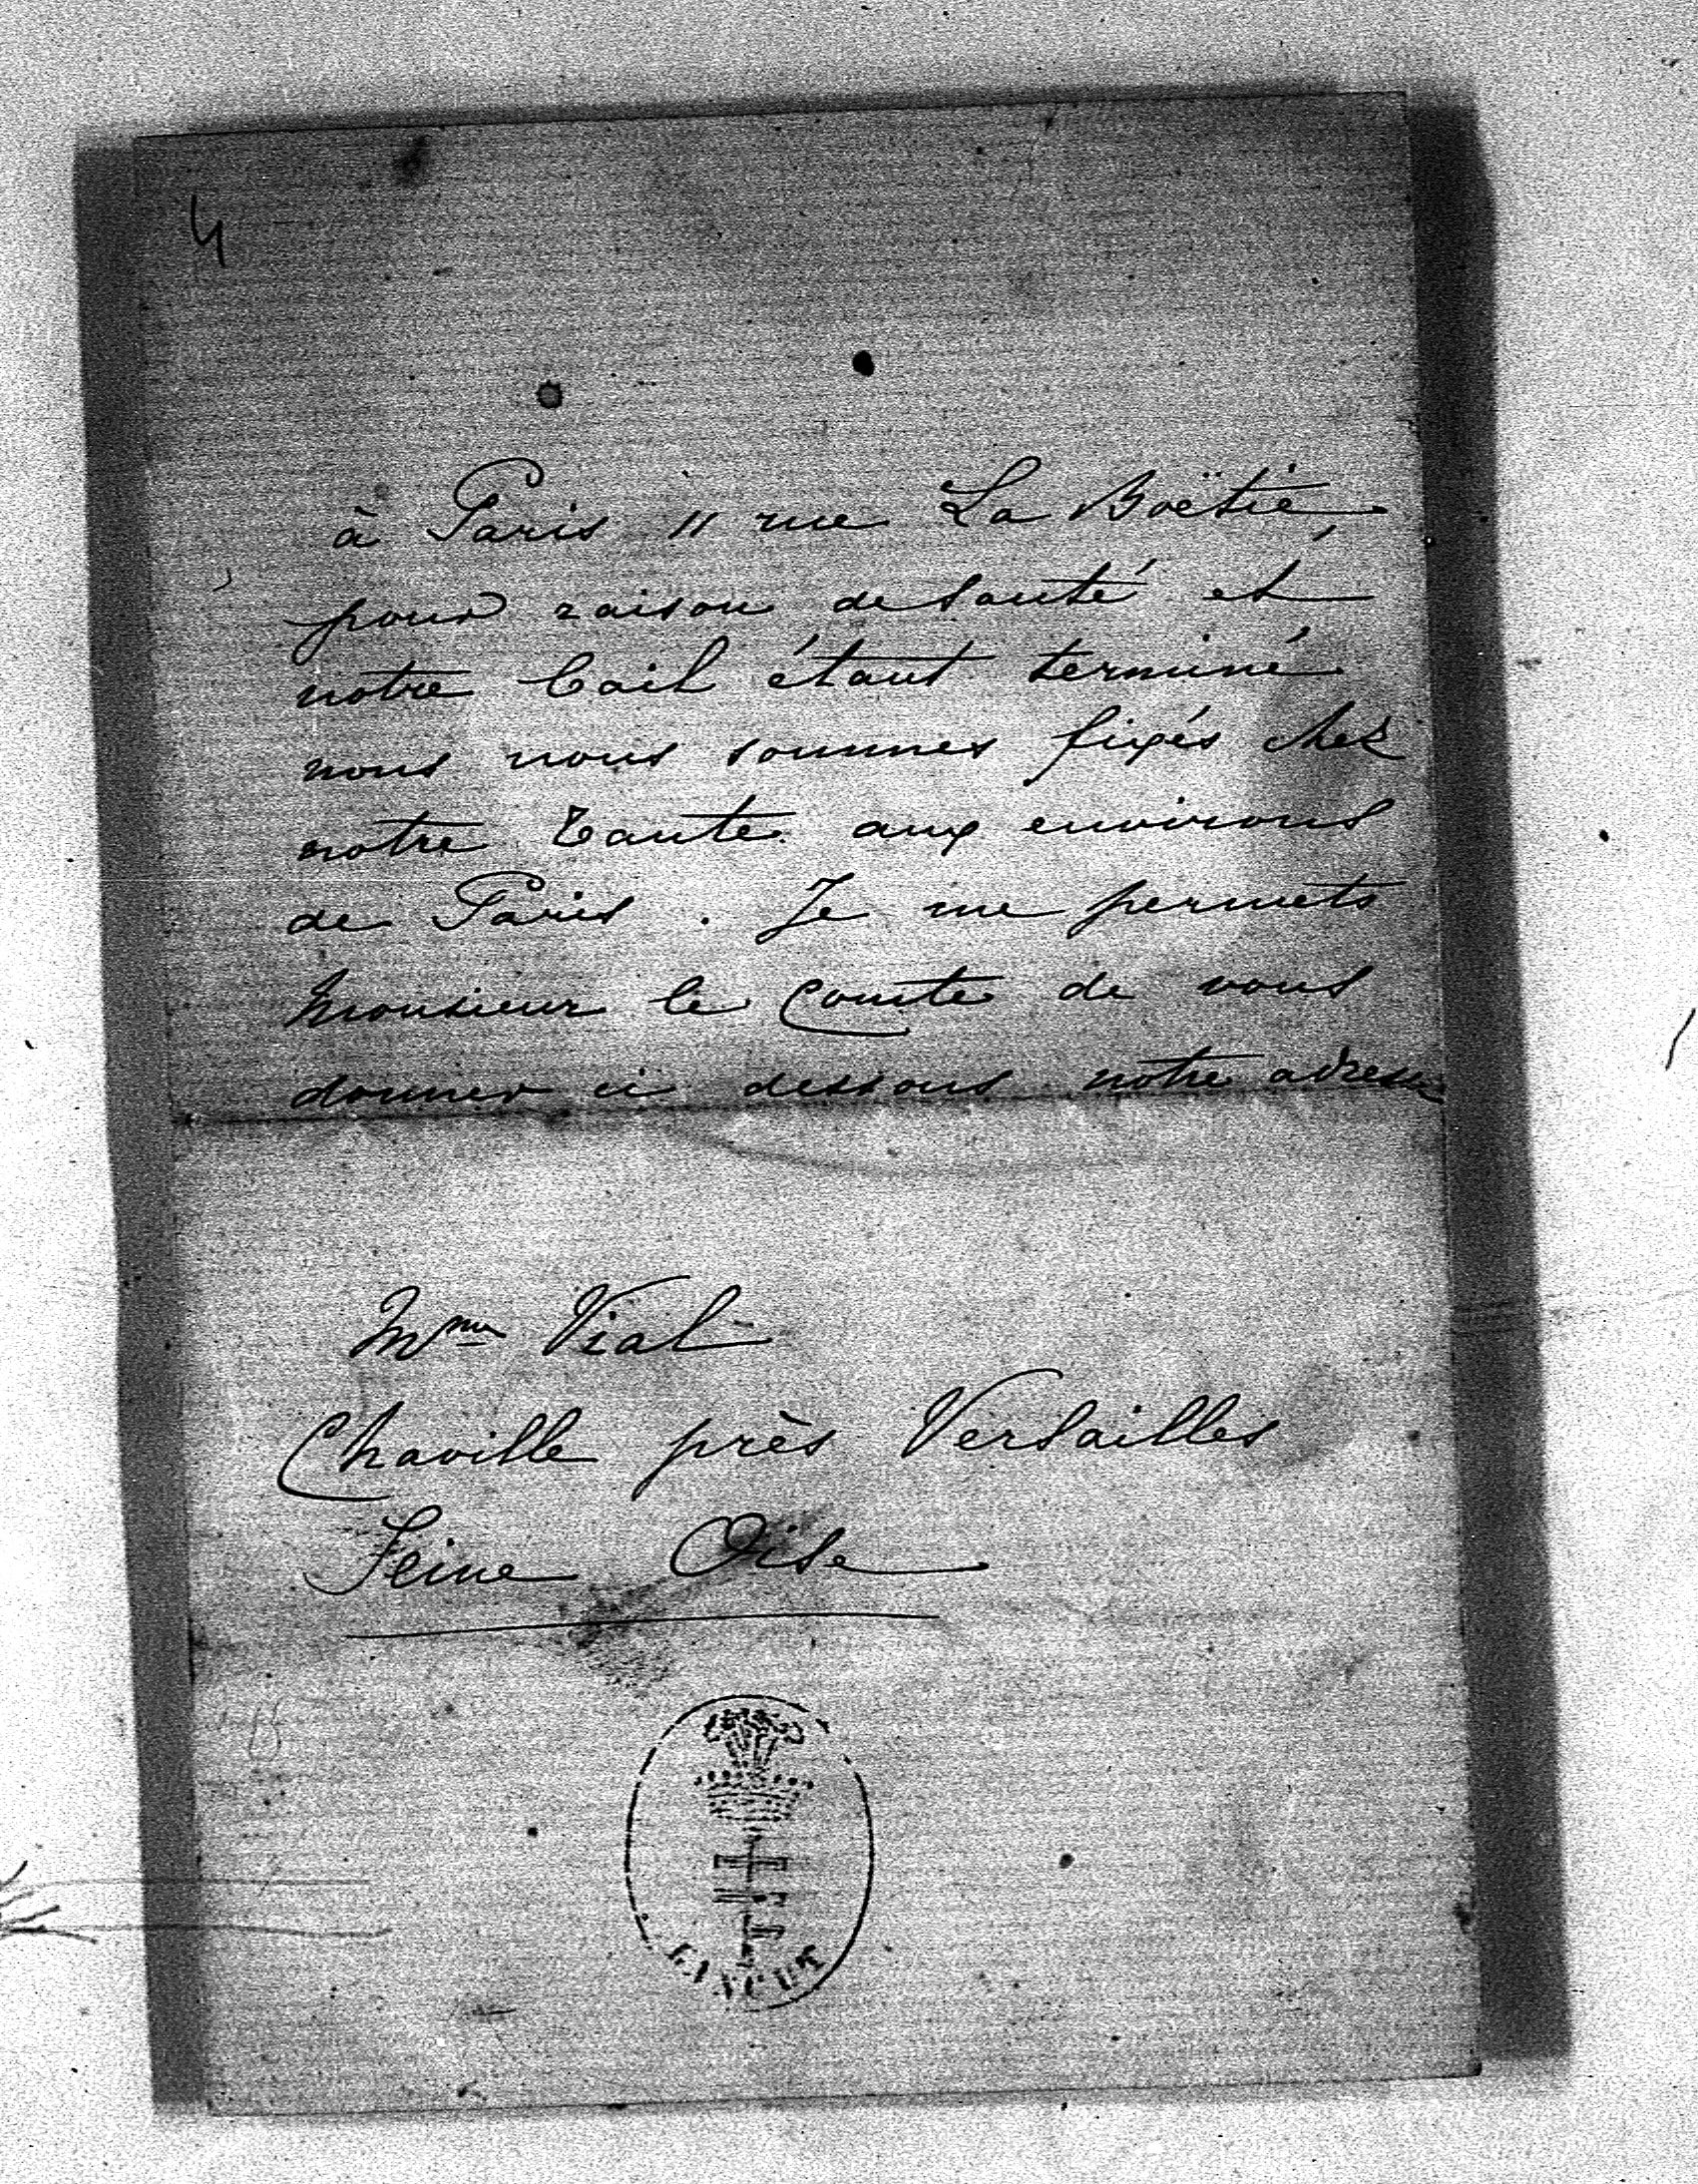 4
à Paris 11 rue La Boëtie,
pour raison de santé et
notre bail étant terminé
nous nous sommes fixés chez
notre tante aux environs
de Paris. Je me permets
Monsieur le Comte de vous
donner ci dessous notre adresse
Mme Vial
Chaville près Versailles
Seine Oise